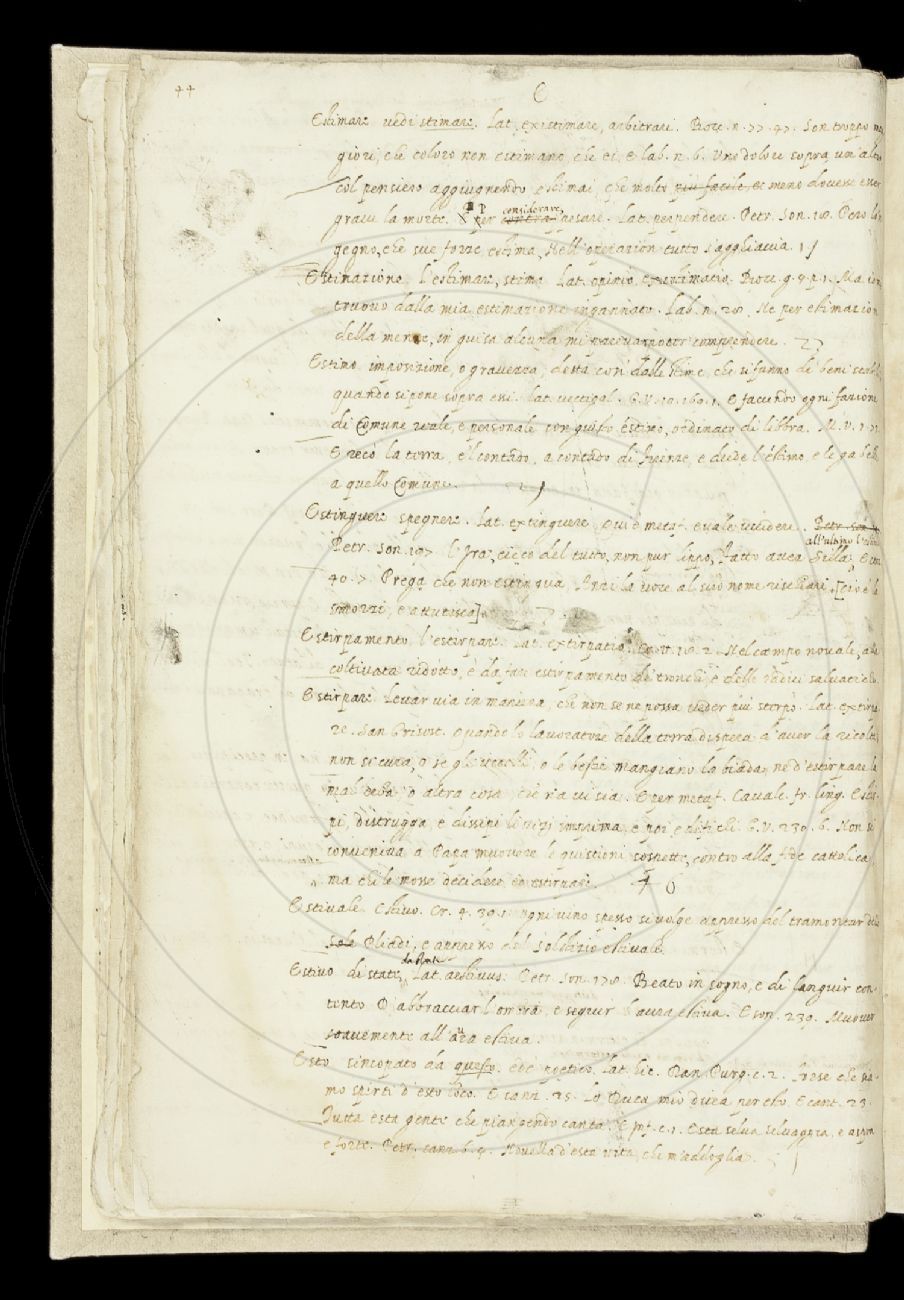 44
E
Estimare vedi stimare. Lat. existimare, arbitrari. Bocc. n. 77. 47. Son troppo
giori, che coloro non estimano, che ei. E lab. n. 6. Uno dolore sopra un altro
col pensiero aggiugnendo estimai, che molto più facile, et meno dovere esser
grave la morte. Per contra considerare, pesare. Lat. perpendere. Petr. Son. 18. Però
gegno, che sue forze estima, Nell'operazion tutto s'agghiaccia.
Estimazione. l'estimare, stima. Lat. opinio, existimatio. Bocc. g. 4. p. 1. Ma io
truovo dalla mia estimazione ingannato. Lab. n. 28. Ne per estimazion
della mente, in guisa alcuna mi comprendere. 2
Estimo. imposizione, o gravezza, detta così dalle stime, che si fanno di beni
quando si pone sopra essi. Lat. vectigal. G.V. 10. 169. 1. E facendo ogni fazione
di Comune reale, e personale con giusto estimo, ordinato di libbra. M.V. 1.
E recò la terra, e'l contado, a contado di Firenze, e diede l'estimo, e le gabelle
a quello Comune.
Estinguere spegnere. Lat. extinguere. Qui è metaf. e vale uccidere. Petr. Son.
all'ultimo
Petr. Son. 197. l'Ira cieco del tutto, non pur lippo, Fatto avea Silla, E
40. 7. Prega che non estingua Anzi la voce al suo nome rischiari, [cioè
smorzi, e attutisca]
Estirpamento. l'estirpare. Lat. extirpatio. Cr. 2. Nel campo novale, a
coltivata ridotto, è da fare estirpamento de' tronchi, e delle radici salvatiche.
Estirpare. Levar via in maniera, che non se ne possa veder più sterpo. Lat. extirpa
re. San Grisost. Quando lo lavoratore della terra dispera d'aver la ricolta,
non si cura, o se gli uccelli, o le bestie mangiano la biada, ne d'estirpare la
mal' erba, o altra cosa, che ria vi sia. E per metaf. Cavalc. fr. ling. Estir-
pi, distrugga, e dissipi li vizj imprima, e poi edifichi. G.V. 230. 6. Non si
conveniva a Papa muovere le quistioni sospette, contro alla fede cattolica,
ma chi le mosse decidere, ed estirpare. 4 6
Estivale. Estivo. Cr. 4. 39. 1. ogni vino spesso si volge appresso del tramontar delle
sole Pliadi, e appresso del solstizio estivale.
Estivo di state, da state. Lat. aestivus. Petr. Son. 178. Beato in sogno, e di languir con-
tento D'abbracciar l'ombra, e seguir l'aura estiva. E son. 239. Muover
soavemente all'aura estiva.
Esto sincopato da questo. ed è poetico. Lat. hic. Dan. Purg. c. 2. Forse che sia-
mo spirti d'esto loco. E cant. 25. Lo Duca mio dicea per cho. E cant. 23.
Tutta esta gente che piangendo canta. E Inf. c. 1. Esta selva selvaggia, e aspra
e forte. Petr. canz. 6. 4. Novella d'esta vita, che m'addoglia.